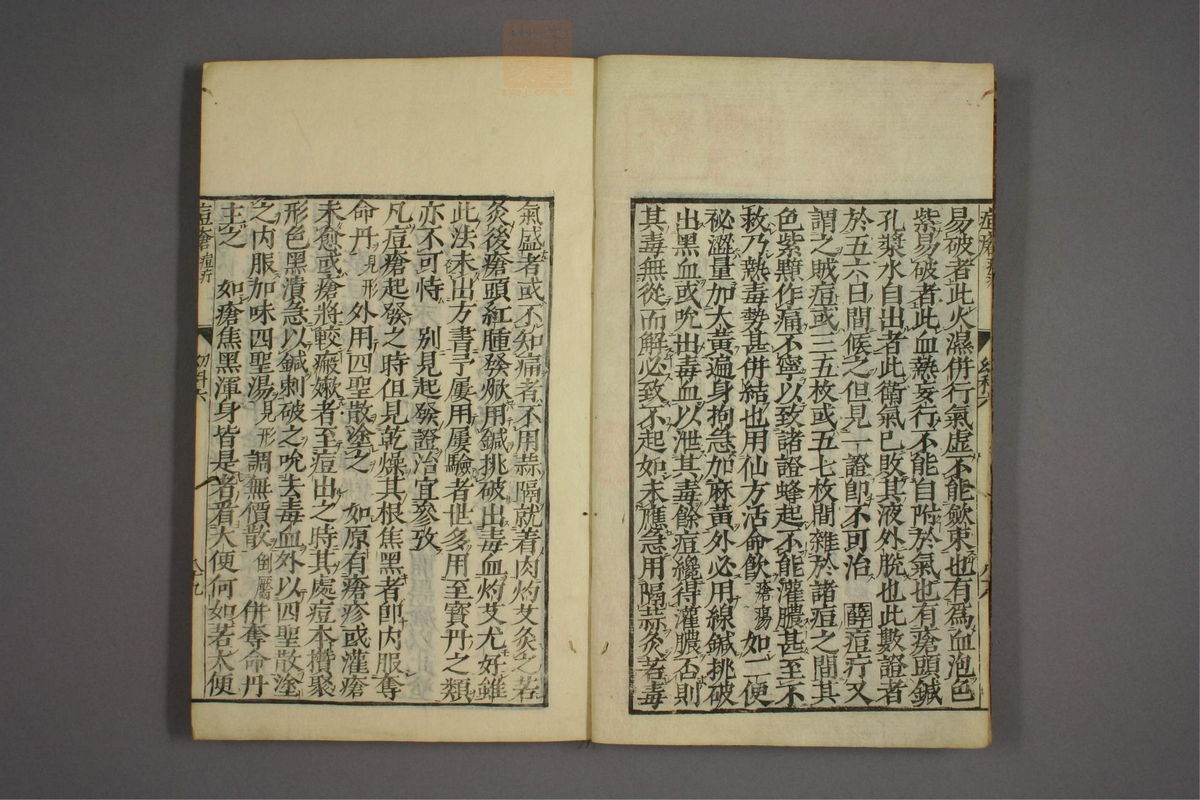 易破者此火濕併行氣虛不能歛束也有為血泡色
紫易破者此血熱妄行不能自附於氣也有瘡頭鍼
孔漿水自出者此衛氣已敗其液外脫也此數證者
於五六日間候之但見一證卽不可治 薛痘疔又
謂之賊痘或三五枚或五七枚間雜於諸痘之間其
色紫黯作痛不寧以致諸證蜂起不能灌膿甚至不
救乃熱毒勢甚併結也用仙方活命飲瘡瘍如二便
祕澀量加大黃遍身拘急加麻黃外必用線鍼挑破
出黑血或吮出毒血以泄其毒餘痘纔得灌膿否則
其毒無從而解必致不起如未應急用隔蒜灸若毒
氣盛者或不知痛者不用蒜隔就着肉灼艾灸之若
灸後瘡頭紅腫發焮用鍼挑破出毒血灼艾尤好雖
此法未出方書予屢用屢驗者世多用至寶丹之類
亦不可恃 別見起發證治宜參攷
凡痘瘡起發之時但見乾燥其根焦黑者卽內服奪
命丹見形外用四聖散塗之 如原有瘡疹或灌瘡
未愈或瘡將較瘢嫩者至痘出之時其處痘本攢聚
形色黑潰急以鍼刺破之吮去毒血外以四聖散塗
之內服加味四聖湯見形調無價散倒黶併奪命丹
主之 如瘡焦黑渾身皆是者看大便何如若大便
痘瘡 痘疔 幼科六 八九